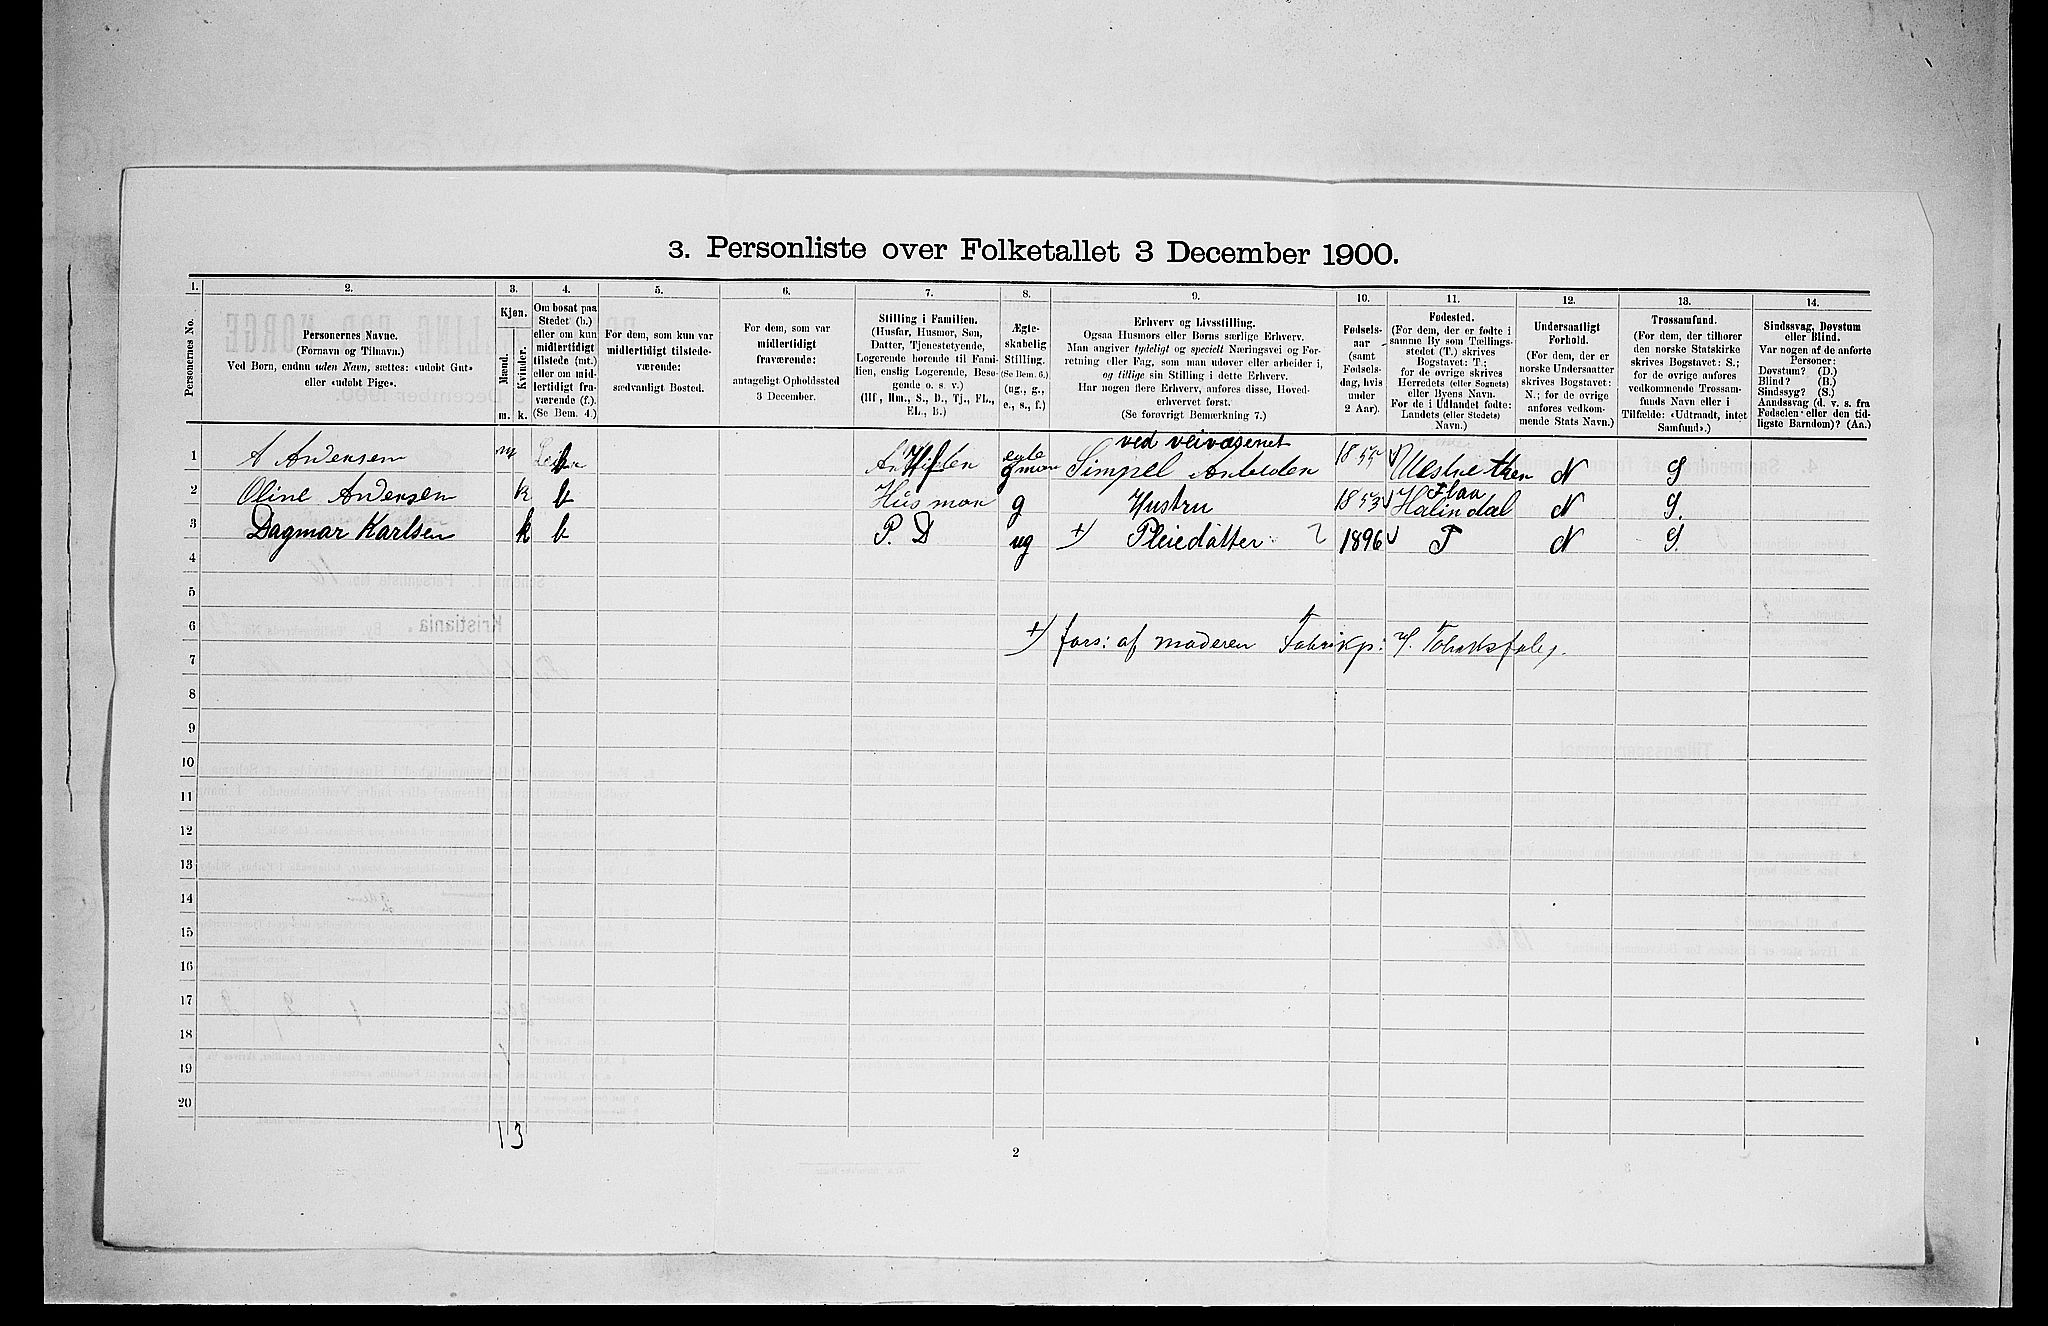 3. Personliste over Folketallet 3 December 1900.
1. 2. 3. 4. 5. 6. 7. 8. 9. 10. 11. 12. 13. 14.
Personernes No.
Personernes Navne.
(Fornavn og Tilnavn.)
Ved Børn, endnu uden Navn, sættes: «udøbt Gut»
eller «udøbt Pige».
Kjøn.
Mænd.
Kvinder.
m. k.
Om bosat paa
Stedet (b.)
eller om kun
midlertidigt
tilstede (mt.)
eller om mid-
lertidigt fra-
værende (f.).
(Se Bem. 4.)
For dem, som kun var
midlertidigt tilstede-
værende:
sædvanligt Bosted.
For dem, som var
midlertidigt
fraværende:
antageligt Opholdssted
3 December.
Stilling i Familien.
(Husfar, Husmor, Søn,
Datter, Tjenestetyende,
Logerende hørende til Fami-
lien, enslig Logerende, Besø-
gende o. s. v.)
(Hf, Hm., S., D., Tj., FL.,
EL., B.)
Ægte-
skabelig
Stilling.
(Se Bem. 6.)
(ug., g.,
e., s., f.)
Erhverv og Livsstilling.
Ogsaa Husmors eller Børns særlige Erhverv.
Man angiver tydeligt og specielt Næringsvei og For-
retning eller Fag, som man udøver eller arbeider i,
og tillige sin Stilling i dette Erhverv.
Har nogen flere Erhverv, anføres disse, Hoved-
erhvervet først.
(Se forøvrigt Bemærkning 7.)
Fødsels-
aar
(samt
Fødsels-
dag, hvis
under
2 Aar).
Fødested.
(For dem, der er fødte i
samme By som Tællings-
stedet (T.) skrives
Bogstavet: T.;
for de øvrige skrives
Herredets (eller Sognets)
eller Byens Navn.
For de i Udlandet fødte:
Landets (eller Stedets)
Navn.)
Undersaatligt
Forhold.
(For dem, der er
norske Undersaatter
skrives Bogstavet:
N.; for de øvrige
anføres vedkom-
mende Stats Navn.)
Trossamfund.
(For dem, der tilhører
den norske Statskirke
skrives Bogstavet: S.;
for de øvrige anføres
vedkommende Trossam-
funds Navn eller i
Tilfælde: «Udtraadt, intet
Samfund».)
Sindssvag, Døvstum
eller Blind.
Var nogen af de anførte
Personer:
Døvstum? (D.)
Blind? (B.)
Sindssyg? (S.)
Aandssvag (d. v. s. fra
Fødselen eller den tid-
ligste Barndom)? (Aa.)
ved veivæsenet
1 A Andersen m b Hf g Simpel Arbeider N S
Flaa
2 Oline Andersen k b Husmor g Hustru 1853 Halindal N S.
3 Dagmar Karlsen k b P. D ug +) Pleiedatter 1896 T N S.
4
5
6
+) fors: af moderen
7
8
9
10
11
12
13
14
15
16
17
18
19
20
1 3
2